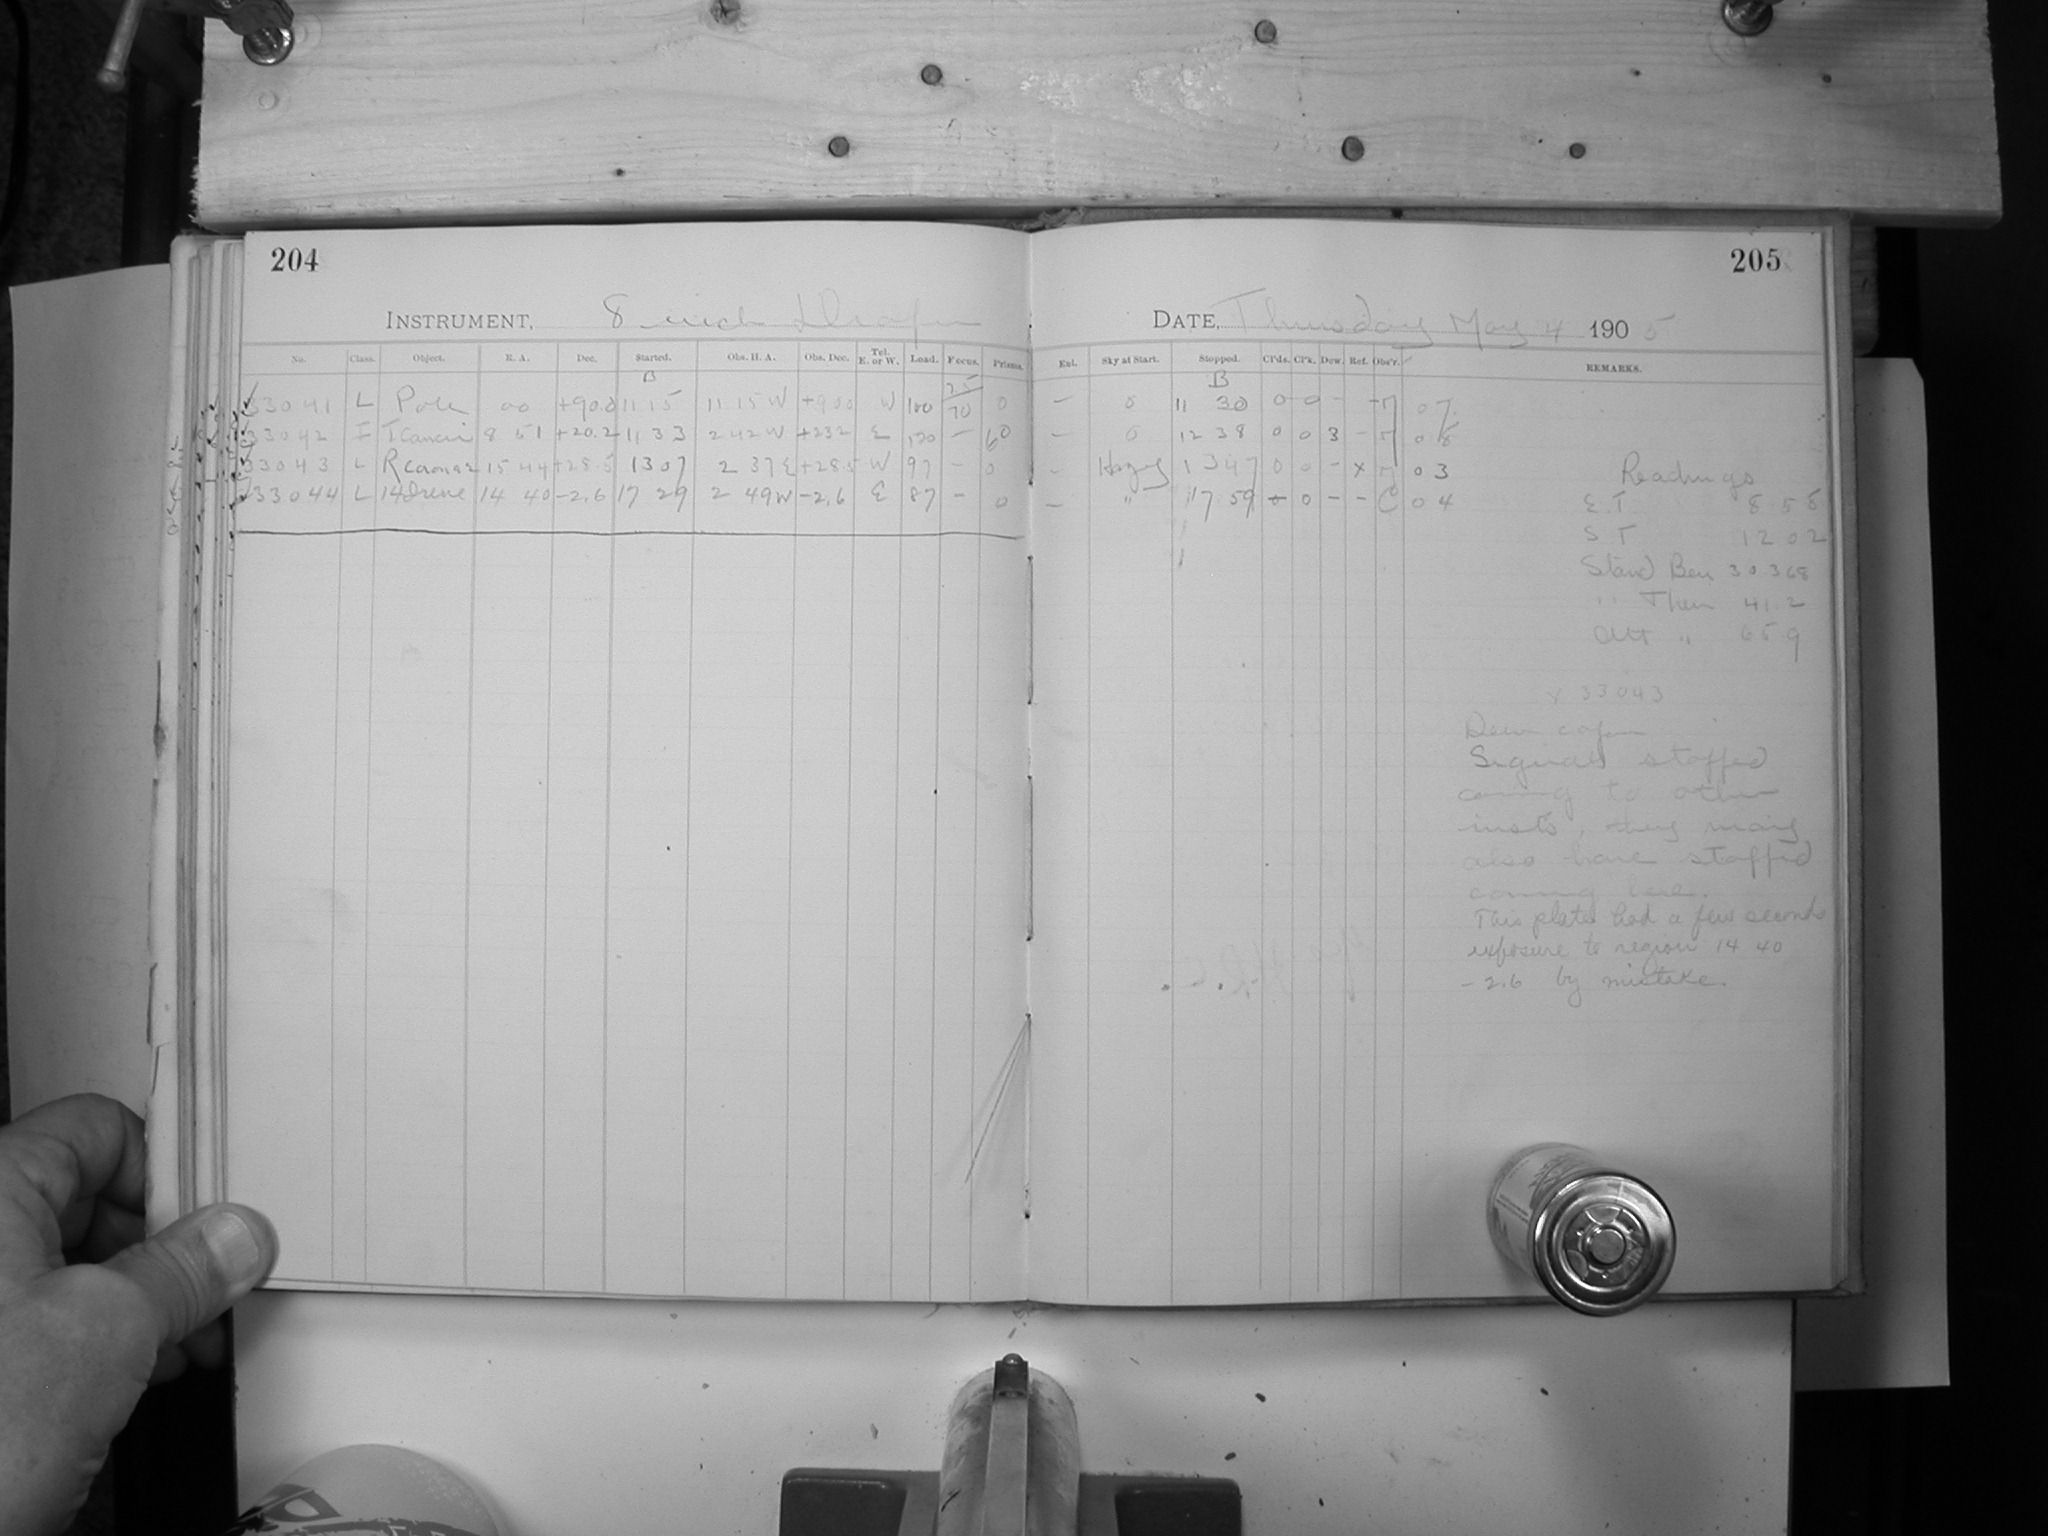 204
205
INSTRUMENT, 8 inch Draper
DATE, Thursday May 4 1905
No. Class. Object. R. A. Dec. Started. Obs. H. A. Obs. Dec. Tel. E. or W. Load. Focus. Prisms.
Ext. Sky at Start. Stopped. Cl'ds. Cl'k. Dew. Ref. Obs'r. REMARKS.
B
B
33041 L Pole 00 +90.0 11 15 11 15 W +90.0 W 100 25/70 0 – 0 11 30 0 0 - - 7 07
33042 I T Cancri 8 51 +20.2 11 33 2 42 W +23.2 E 120 – 60 – 0 12 38 0 0 3 - 7 08
33043 L R Coronae 15 44 +28.5 13 07 2 37 E +28.5 W 97 – 0 – Hazy 13 47 0 0 - x 7 03
33044 L 14 Irene 14 40 -2.6 17 29 2 49 W -2.6 E 87 – 0 – " 17 59 0 - - C 04
Readings
E. T 8 58
S T 12 02
Stand Bar 30.368
" Ther 41.2
Att " 65 9
x 33043
Dew cap
Signals stopped
coming to other
insts, they may
also have stopped
coming here.
This plate had a few seconds
exposure to region 14 40
- 2.6 by mistake.